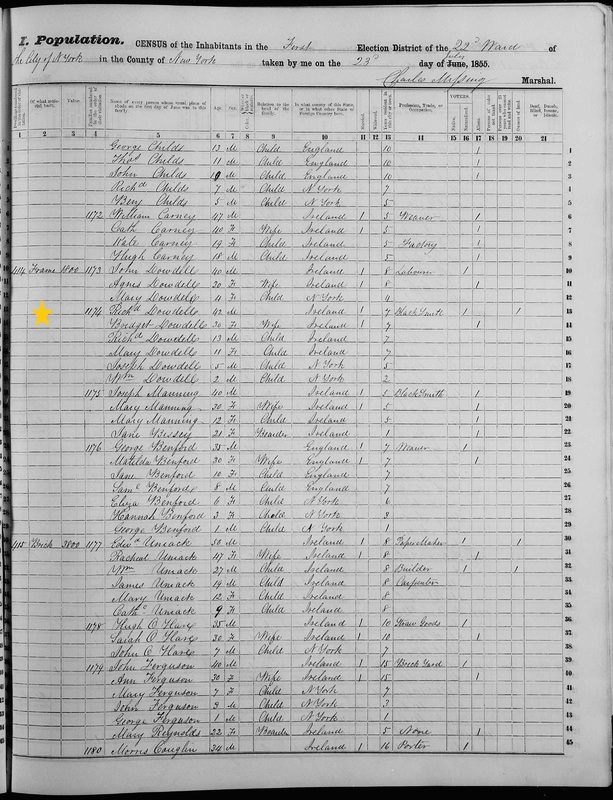 I. Population. CENSUS of the Inhabitants in the First Election District of the 22d Ward of
the City of N York in the County of New York taken by me on the 23d day of June, July 1855.
Charles Marshal.
Of what material built. Value. Name of every person whose usual place of abode on the first day of June was in this family. Age. Sex. Relation to the head of the family. In what county of this State, or in what other State or Foreign Country born. Married. Widowed. Profession, Trade, or Occupation. VOTERS. Native. Naturalized. Aliens. Owners of land.
1 2 3 4 5 6 7 8 9 10 11 12 13 14 15 16 17 18 19 20 21
George Childs 13 M Child England 10 1 1
Thos Childs 11 M Child England 10 1 2
John Childs 19 M Child England 10 1 3
Richd Childs 7 M Child N York 7 4
Benj Childs 5 M Child N York 5 5
1172 William Carney 47 M Ireland 1 5 Weaver 1 6
Cath Carney 40 F Wife Ireland 1 5 1 7
Kate Carney 19 F Child Ireland 5 Factory 1 8
Hugh Carney 18 M Child Ireland 5 1 9
414 Frame 1800 1173 John Dowdell 40 M Ireland 1 8 Labourer 1 10
Agnes Dowdell 30 F Wife Ireland 1 8 1 11
Mary Dowdell 4 F Child N York 4 12
1174 Richd Dowdell 42 M Ireland 1 7 Black Smith 1 1 13
Bridget Dowdell 30 F Wife Ireland 1 7 1 14
Richd Dowdell 13 M Child Ireland 7 15
Mary Dowdell 11 F Child Ireland 7 16
Joseph Dowdell 5 M Child N York 5 17
Wm Dowdell 2 M Child N York 2 18
1175 Joseph Manning 40 M Ireland 1 5 Black Smith 1 19
Mary Manning 30 F Wife Ireland 1 5 1 20
Mary Manning 12 F Child Ireland 5 1 21
Jane 21 F Boarder Ireland 1 1 22
1176 George Benford 35 M England 1 7 Weaver 1 23
Matilda Benford 30 F Wife England 1 7 1 24
Jane Benford 10 F Child England 7 25
Saml Benford 8 M Child England 7 26
Eliza Benford 6 F Child N York 6 27
Hannah Benford 3 F Child N York 3 28
George Benford 1 M Child N York 1 29
415 Brick 3800 1177 Edwd Uniack 50 M Ireland 1 8 Maker 1 1 30
Racheal Uniack 47 F Wife Ireland 1 8 1 31
Wm Uniack 27 M Child Ireland 8 Builder 1 1 32
James Uniack 19 M Child Ireland 8 Carpenter 33
Mary Uniack 12 F Child Ireland 8 34
Cathe Uniack 9 F Child Ireland 8 35
1178 Hugh O Hare 35 M Ireland 1 10 Straw Goods 1 36
Sarah O Hare 30 F Wife Ireland 1 10 1 37
John O Hare 7 M Child N York 7 38
1179 John Ferguson 40 M Ireland 1 15 Brick Yard 1 39
Ann Ferguson 30 F Wife Ireland 1 15 1 40
Mary Ferguson 7 F Child N York 7 41
John Ferguson 3 M Child N York 3 42
George Ferguson 1 M Child N York 1 43
Mary Reynolds 22 F Boarder Ireland 5 None 1 44
1180 Morris Coughlin 34 M Ireland 1 16 Porter 1 45